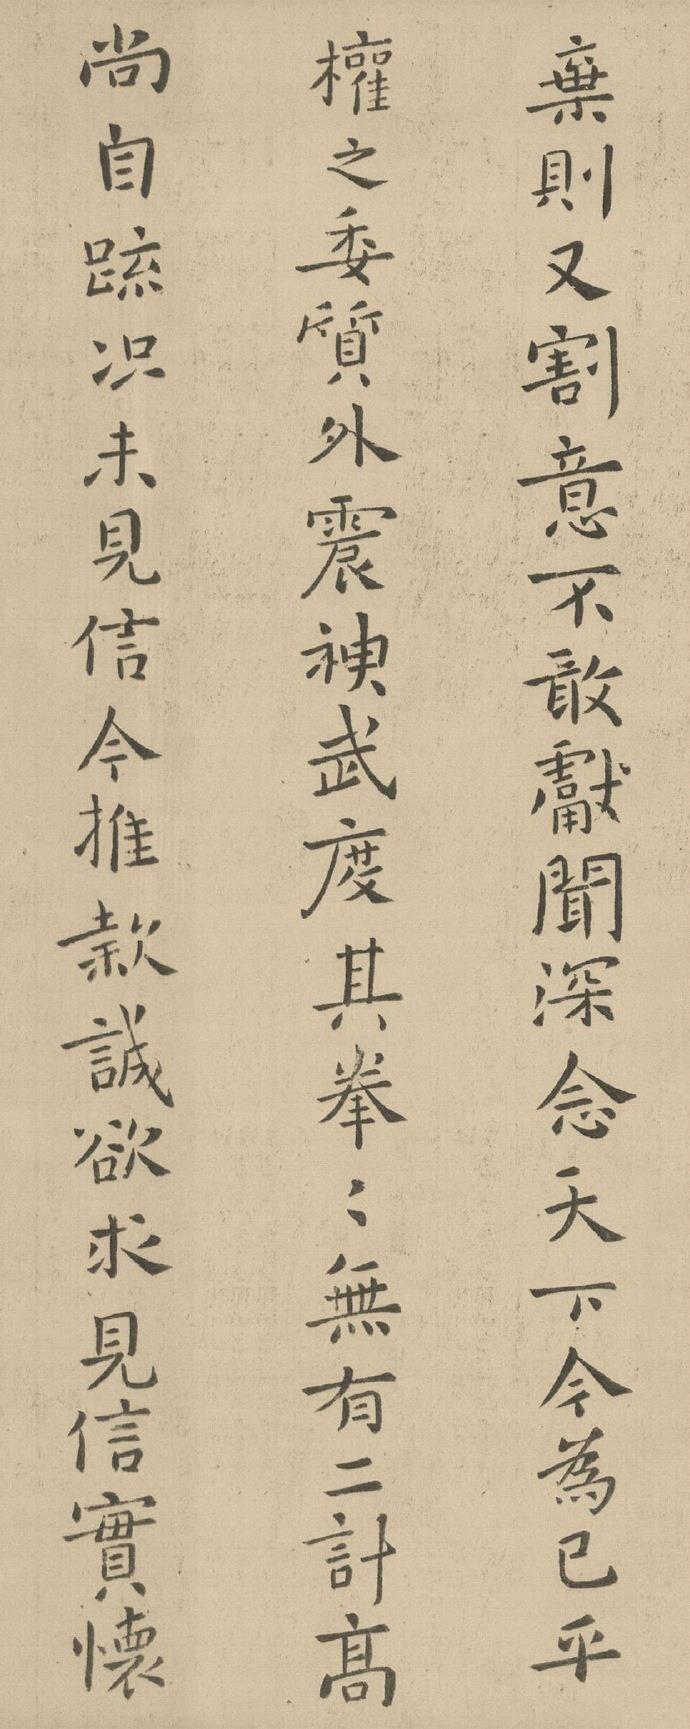 棄則又割意不敢獻聞深念天下今為已平
權之委質外震神武度其拳〻無有二計高
尚自疏況未見信今推款誠欲求見信實懷